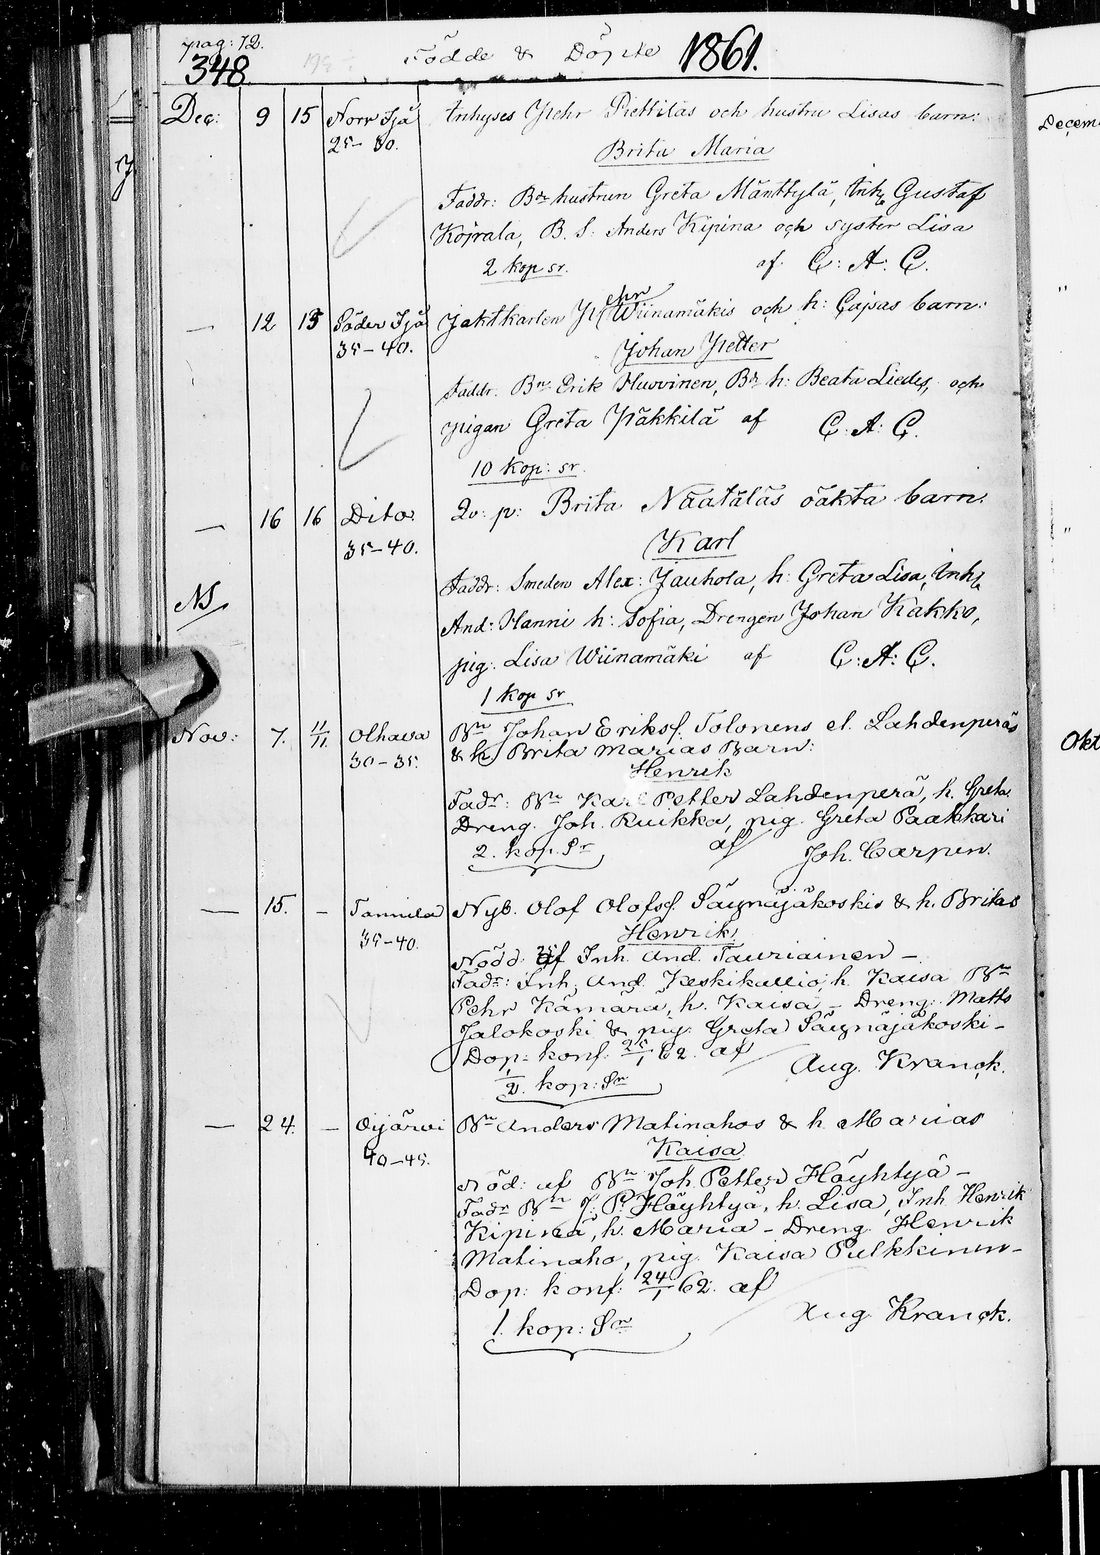 pag: 72.
348. Födde & Döpte 1861.
Dec: 9 15 Norr Ijå Inhyses Pehr Piettiläs och hustru Lisas barn:
25–30.
Brita Maria
Faddr: Bde hustrun Greta Mänttylä, Inh Gustaf
Kojrala, B. S. Anders Kipina och syster Lisa
2 kop sr. af C: A: C.
— 12 15 Söder Ijå Jaktkarlen Pehr Wiinamäkis och h: Cajsas barn:
35–40.
Johan Petter
Faddr. Bn Erik Huovinen, Bd h: Beata Liedes, och
pigan Greta Päkkilä af C: A: C.
10 kop: sr.
— 16 16 Dito. Qv: p: Brita Näätäläs oäkta barn:
35–40.
Karl
Faddr: Smeden Alex: Jauhola, h: Greta Lisa, Inh
NS
And: Hanni h: Sofia, Drengen Johan Kakko,
pig. Lisa Wiinamäki af C: A: C.
1 kop sr
Nov: 7. 11/11 Olhava Bn Johan Eriksf. Tolonens el. Lahdenperäs
30–35. & h Brita Marias Barn:
Henrik
Fadr: Bn Karl Petter Lahdenperä, h. Greta
Dreng. Joh. Ruikka, pig. Greta Paakkari
2. kop. Sr af Joh. Carpen.
— 15. – Tannila Nyb. Olof Olofsf. Säynäjäkoskis & h. Britas
35–40.
Henrik
Nödd: af Inh. And. Tauriainen –
Fadr: Inh. And. Keskikallio, h. Kaisa Bn
Pehr Kämärä, h. Kaisa – Dreng: Matts
Jalokoski & pig. Greta Säynäjäkoski –
Dop: konf: 25/1 62. af
Aug. Kranck.
1/2. kop: Sr
— 24. – Oijärvi Bn Anders Matinahos & h. Marias
40–45.
Kaisa
Nöd: af Bn Joh. Petter Höyhtyä –
Fadr Bn J. P. Höyhtyä, h. Lisa, Inh Henrik
Kipinä, h. Maria – Dreng Henrik
Matinaho, pig. Kaisa Pulkkinen –
Dop: konf: 24/1 62. af
Aug Kranck.
1. kop: Sr
Decem
Okt